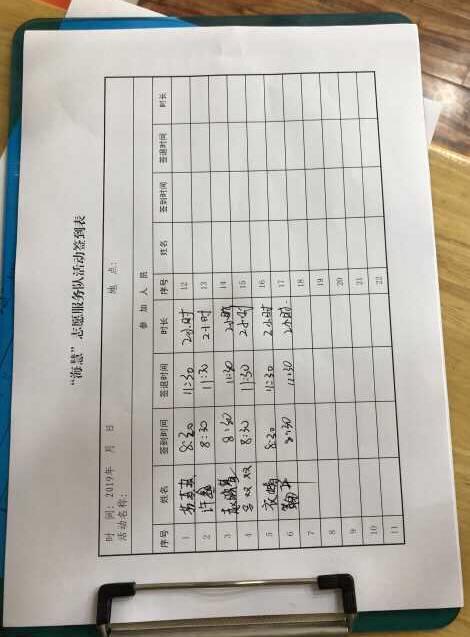 “海慧”志愿服务队活动签到表
时 间：2019年 月 日 地 点：
活动名称：
参 加 人 员
序号 姓名 签到时间 签退时间 时长 序号 姓名 签到时间 签退时间 时长
1 8:30 11:30 2小时 12
2 许鑫 8:30 11:30 2小时 13
3 8:30 11:30 2小时 14
4 吕双双 8:30 11:30 2小时 15
5 8:30 11:30 2小时 16
6 8:30 11:30 2小时 17
7 18
8 19
9 20
10 21
11 22